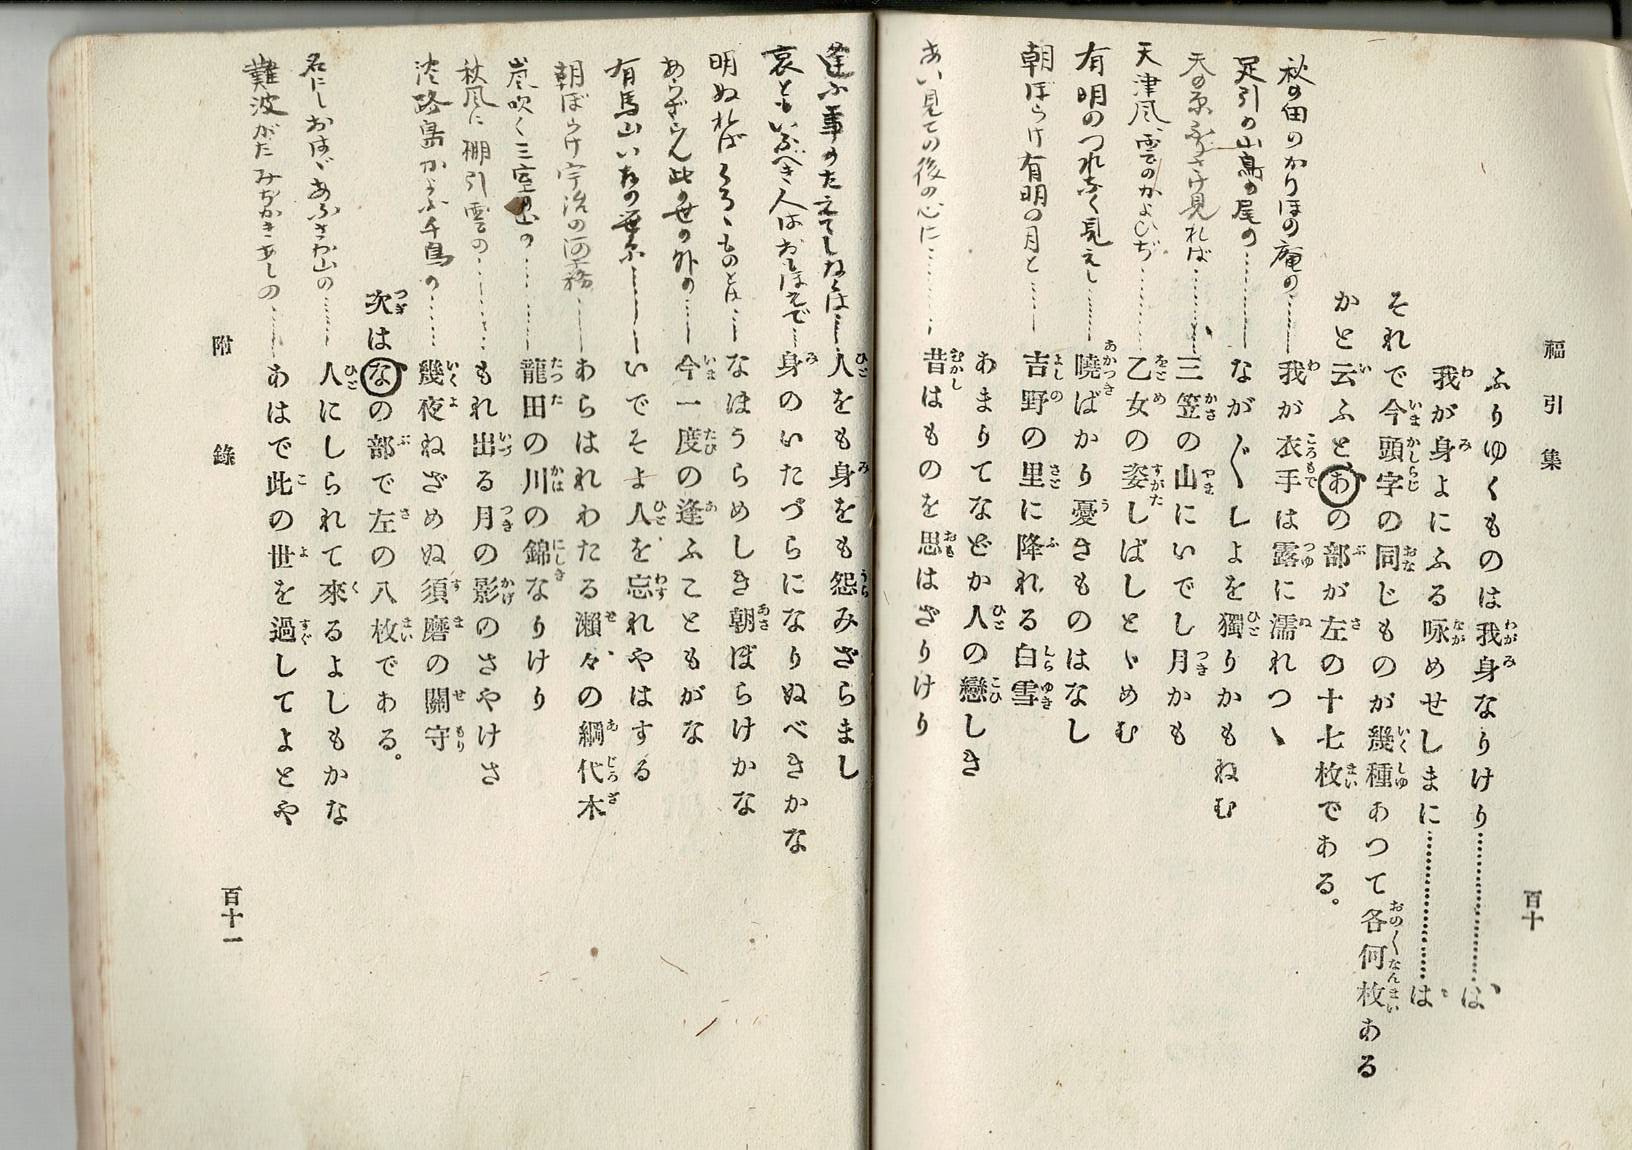 福引集
ふりゆくものは我身なりけり………は
我が身よにふる咏めせしまに………は
それで今頭字の同じものが幾種あつて各何枚ある
かと云ふと、あの部が左の十七枚である。
秋の田のかりほの庵の……我が衣手は露に濡れつゝ
足引の山鳥の尾の……なが〲しよを獨りかもねむ
天の原ふりさけ見れば……三笠の山にいでし月かも
天津風雲のかよひぢ……乙女の姿しばしとゞめむ
有明のつれなく見えし……曉ばかり憂きものはなし
朝ぼらけ有明の月と……吉野の里に降れる白雪
あまりてなどか人の戀しき
あい見ての後の心に……昔はものを思はざりけり
百十
逢ふ事のたえてしなくは……人をも身をも怨みざらまし
哀ともいふべき人はおもほえで……身のいたづらになりぬべきかな
明ぬればくるゝものとは……なほうらめしき朝ぼらけかな
あらざらん此の世の外の……今一度の逢ふこともがな
有馬山いなの笹原……いでそよ人を忘れやはする
朝ぼらけ宇治の河霧……あらはれわたる瀬々の網代木
嵐吹く三室の山の……龍田の川の錦なりけり
秋風に棚引雲の……もれ出る月の影のさやけさ
淡路島かよふ千鳥の……幾夜ねざめぬ須磨の關守
次はなの部で左の八枚である。
名にしおはゞあふさか山の……人にしられて來るよしもかな
難波がたみぢかきあしの……あはで此の世を過してよとや
附錄
百十一